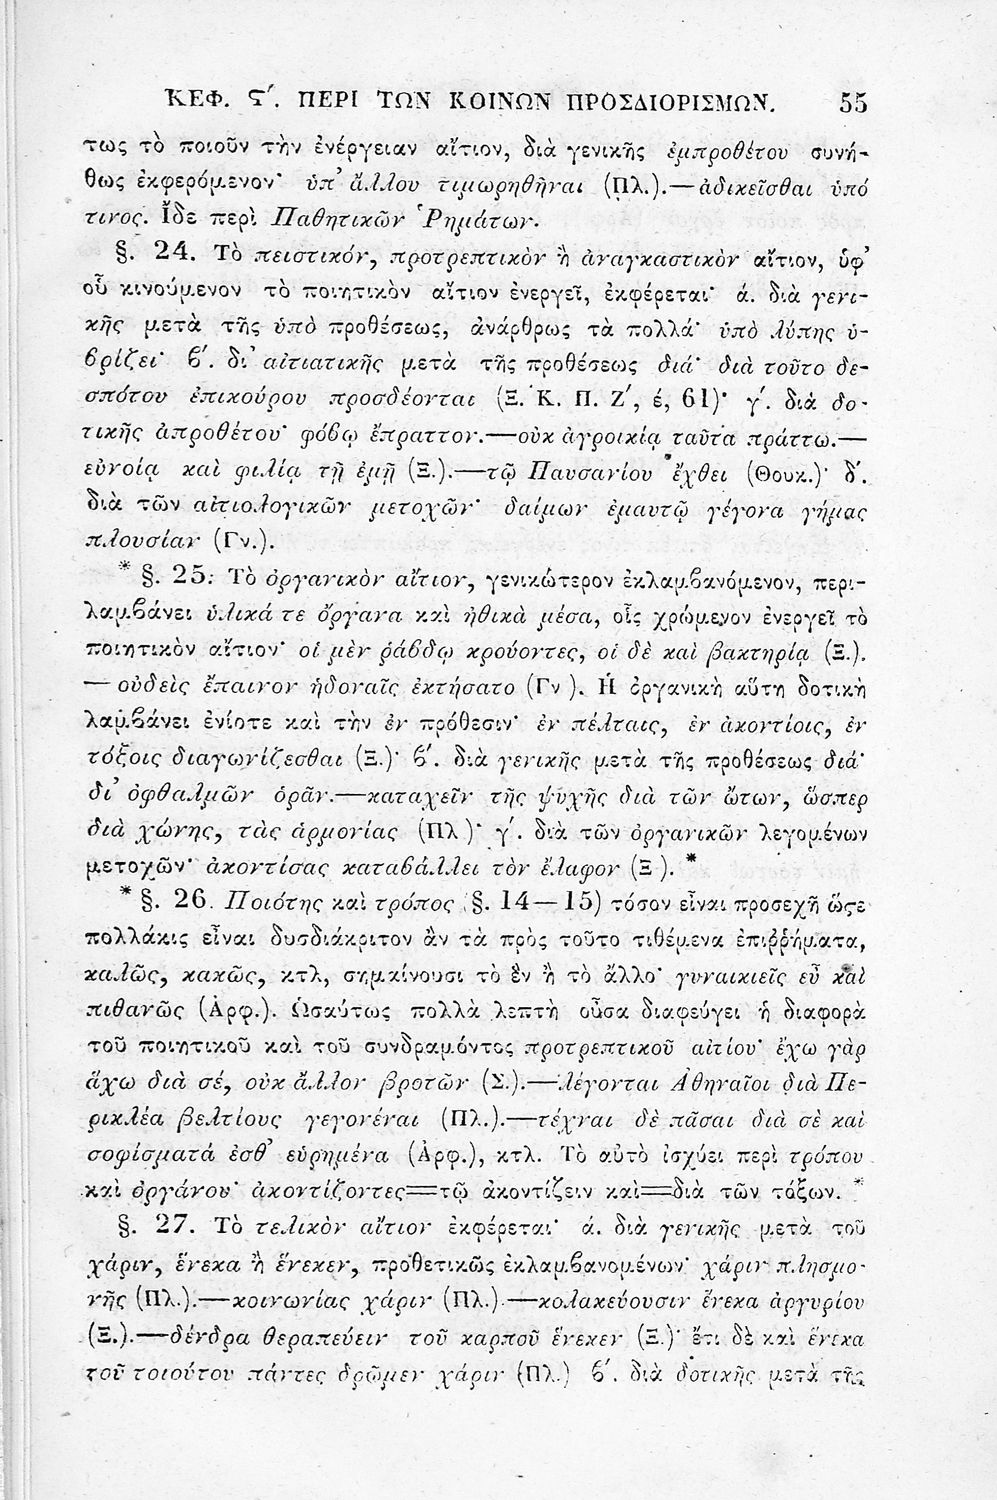 ΚΕΦ. Ϛ΄. ΠΕΡΙ ΤΩΝ ΚΟΙΝΩΝ ΠΡΟΣΔΙΟΡΙΣΜΩΝ. 55
τως τὸ ποιοῦν τὴν ἐνέργειαν αἴτιον, διὰ γενικῆς ἐμπροθέτου συνή-
θως ἐκφερόμενον· ὑπ' ἄλλου τιμωρηθῆναι (Πλ.).—ἀδικεῖσθαι ὑπό
τινος. Ἴδε περὶ Παθητικῶν Ῥημάτων.
§. 24. Τὸ πειστικόν, προτρεπτικὸν ἢ ἀναγκαστικὸν αἴτιον, ὑφ'
οὗ κινούμενον τὸ ποιητικὸν αἴτιον ἐνεργεῖ, ἐκφέρεται· ά. διὰ γενι-
κῆς μετὰ τῆς ὑπὸ προθέσεως, ἀνάρθρως τὰ πολλά· ὑπὸ λύπης ὑ-
βρίζει· ϐ΄. δι' αἰτιατικῆς μετὰ τῆς προθέσεως διά· διὰ τοῦτο δε-
σπότου ἐπικούρου προσδέονται (Ξ. Κ. Π. Ζ΄, έ, 61)· γ΄. διὰ δο-
τικῆς ἀπροθέτου· φόβῳ ἔπραττον.—οὐκ ἀγροικίᾳ ταῦτα πράττω.—
εὐνοίᾳ καὶ φιλίᾳ τῇ ἐμῇ (Ξ.).—τῷ Παυσανίου ἔχθει (Θουκ.)· δ΄.
διὰ τῶν αἰτιολογικῶν μετοχῶν· δαίμων ἐμαυτῷ γέγονα γήμας
πλουσίαν (Γν.).
* §. 25. Τὸ ὀργανικὸν αἴτιον, γενικώτερον ἐκλαμϐανόμενον, περι-
λαμϐάνει ὑλικά τε ὄργανα καὶ ἠθικὰ μέσα, οἷς χρώμενον ἐνεργεῖ τὸ
ποιητικὸν αἴτιον· οἱ μὲν ῥάβδῳ κρούοντες, οἱ δὲ καὶ βακτηρίᾳ (Ξ.).
— οὐδεὶς ἔπαινον ἡδοναῖς ἐκτήσατο (Γν). Ἡ ὀργανικὴ αὕτη δοτικὴ
λαμϐάνει ἐνίοτε καὶ τὴν ἐν πρόθεσιν· ἐν πέλταις, ἐν ἀκοντίοις, ἐν
τόξοις διαγωνίζεσθαι (Ξ.)· ϐ΄. διὰ γενικῆς μετὰ τῆς προθέσεως διά·
δι' ὀφθαλμῶν ὁρᾶν.—καταχεῖν τῆς ψυχῆς διὰ τῶν ὤτων, ὥσπερ
διὰ χώνης, τὰς ἁρμονίας (Πλ)· γ΄. διὰ τῶν ὀργανικῶν λεγομένων
μετοχῶν· ἀκοντίσας καταβάλλει τὸν ἔλαφον (Ξ). *
* §. 26. Ποιότης καὶ τρόπος (§. 14—15) τόσον εἶναι προσεχῆ ὥςε
πολλάκις εἶναι δυσδιάκριτον ἂν τὰ πρὸς τοῦτο τιθέμενα ἐπιῤῥήματα,
καλῶς, κακῶς, κτλ, σημαίνουσι τὸ ἓν ἢ τὸ ἄλλο· γυναικιεῖς εὖ καὶ
πιθανῶς (Ἀρφ.). Ὡσαύτως πολλὰ λεπτὴ οὖσα διαφεύγει ἡ διαφορὰ
τοῦ ποιητικοῦ καὶ τοῦ συνδραμόντος προτρεπτικοῦ αἰτίου· ἔχω γὰρ
ἅχω διὰ σέ, οὐκ ἄλλον βροτῶν (Σ.).—λέγονται Ἀθηναῖοι διὰ Πε-
ρικλέα βελτίους γεγονέναι (Πλ.).—τέχναι δὲ πᾶσαι διὰ σὲ καὶ
σοφίσματά ἐσθ' εὑρημένα (Ἀρφ.), κτλ. Τὸ αὐτὸ ἰσχύει περὶ τρόπου
καὶ ὀργάνου· ἀκοντίζοντες=τῷ ἀκοντίζειν καὶ=διὰ τῶν τόξων. *
§. 27. Τὸ τελικὸν αἴτιον ἐκφέρεται· ά. διὰ γενικῆς μετὰ τοῦ
χάριν, ἕνεκα ἢ ἕνεκεν, προθετικῶς ἐκλαμϐανομένων· χάριν πλησμο-
νῆς (Πλ.).—κοινωνίας χάριν (Πλ.).—κολακεύουσιν ἕνεκα ἀργυρίου
(Ξ.).—δένδρα θεραπεύειν τοῦ καρποῦ ἕνεκεν (Ξ.)· ἔτι δὲ καὶ ἕνεκα
τοῦ τοιούτου πάντες δρῶμεν χάριν (Πλ.) ϐ΄. διὰ δοτικῆς μετὰ τῆς